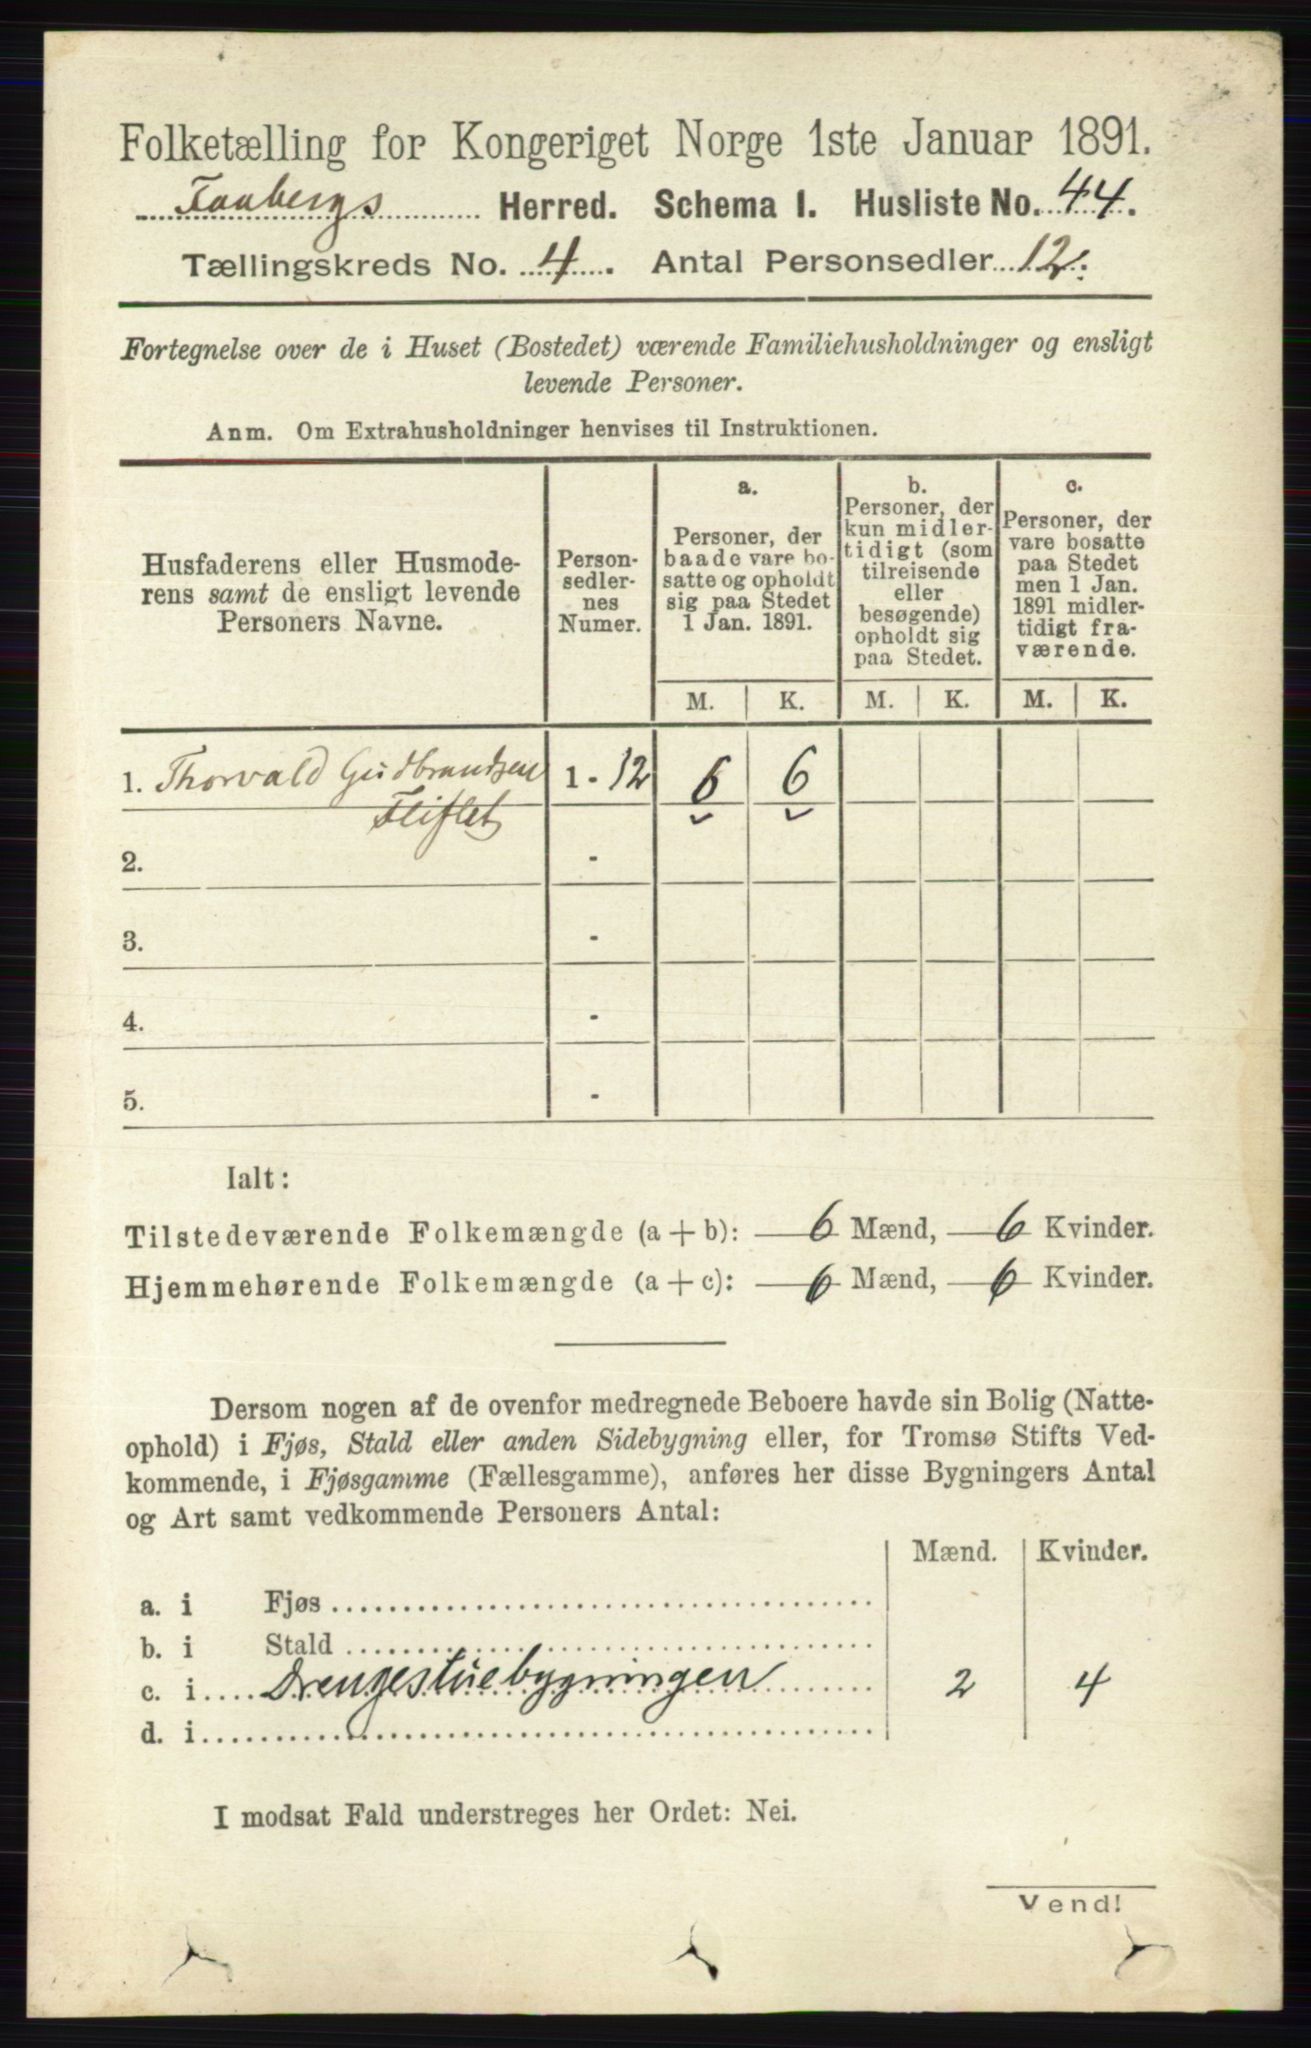 Folketælling for Kongeriget Norge 1ste Januar 1891.
Faabergs Herred. Schema I. Husliste No. 44.
Tællingskreds No. 4. Antal Personsedler 12.
Fortegnelse over de i Huset (Bostedet) værende Familiehusholdninger og ensligt
levende Personer.
Anm. Om Extrahusholdninger henvises til Instruktionen.
Husfaderens eller Husmode-
rens samt de ensligt levende
Personers Navne.
Person-
sedler-
nes
Numer.
a.
Personer, der
baade vare bo-
satte og opholdt
sig paa Stedet
1 Jan. 1891.
b.
Personer, der
kun midler-
tidigt (som
tilreisende
eller
besøgende)
opholdt sig
paa Stedet.
c.
Personer, der
vare bosatte
paa Stedet
men 1 Jan.
1891 midler-
tidigt fra-
værende.
M. K. M. K. M. K.
1. Thorvald Gudbrandsen 1 - 12 6 6
Fliflet
2. -
3. -
4. -
5. -
Ialt:
Tilstedeværende Folkemængde (a + b): 6 Mænd, 6 Kvinder.
Hjemmehørende Folkemængde (a + c): 6 Mænd, 6 Kvinder.
Dersom nogen af de ovenfor medregnede Beboere havde sin Bolig (Natte-
ophold) i Fjøs, Stald eller anden Sidebygning eller, for Tromsø Stifts Ved-
kommende, i Fjøsgamme (Fællesgamme), anføres her disse Bygningers Antal
og Art samt vedkommende Personers Antal:
Mænd. Kvinder.
a. i Fjøs
b. i Stald
c. i Drengestuebygningen 2 4
d. i
I modsat Fald understreges her Ordet: Nei.
Vend!